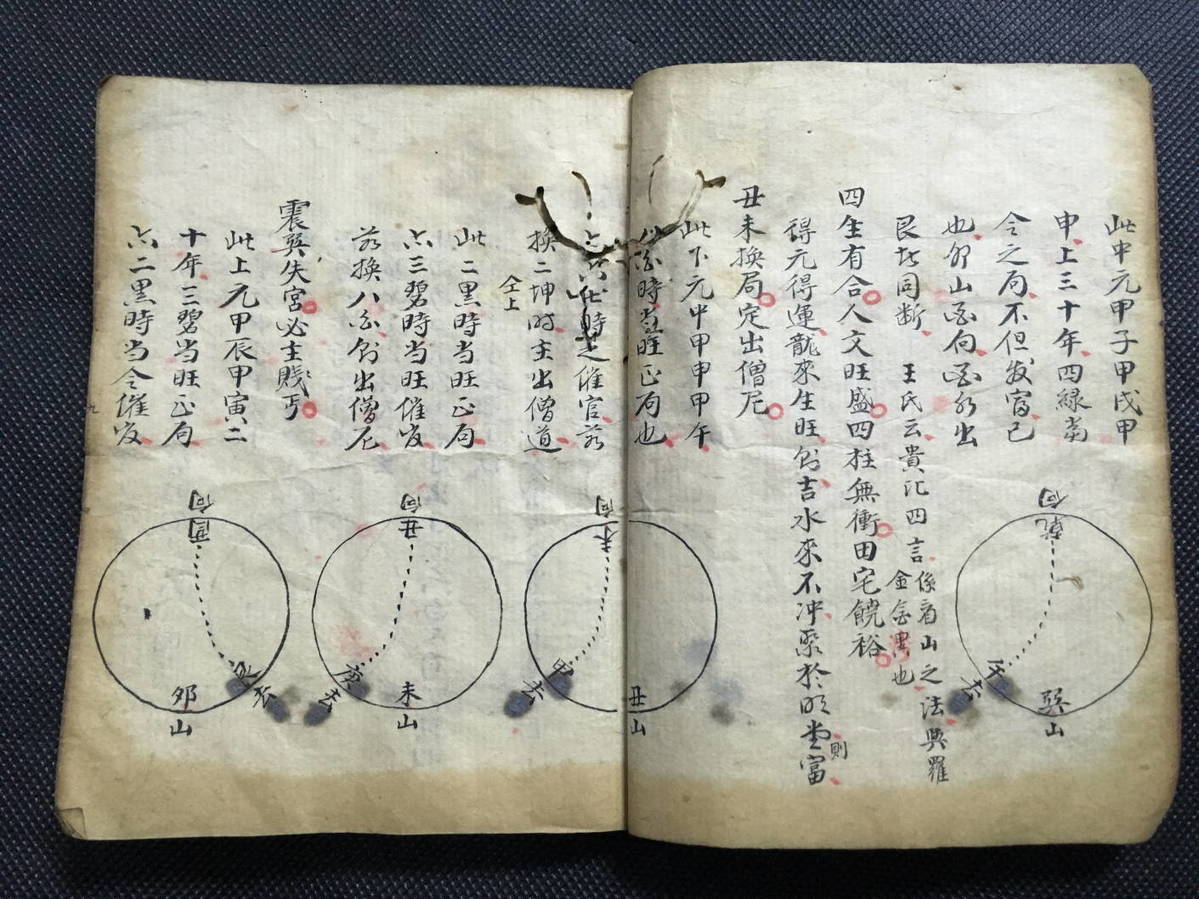 此中元甲子甲戌甲
申上三十年四緑當
令之局不但发富已
也卯山酉向酉水出
艮坎同断 王氏云貴氾四言
係看山之法與羅
金全畧也
四生有合人文旺盛四柱無衝田宅饒裕
得元得運龍來生旺向吉水來不冲聚於明堂則富
丑未換局定出僧尼
此下元中甲申甲午
八白時当旺正局也
六白時之催官若
換二坤時主出僧道
仝上
此二黑時当旺正局
六三碧時当旺催发
若換八白向出僧尼
震巽失宮必主賤丐
此上元甲辰甲寅二
十年三碧当旺正局
六二黑時当令催发
乾向
巽山
未向
甲去
丑山
丑向
庚去
未山
酉向
卯山